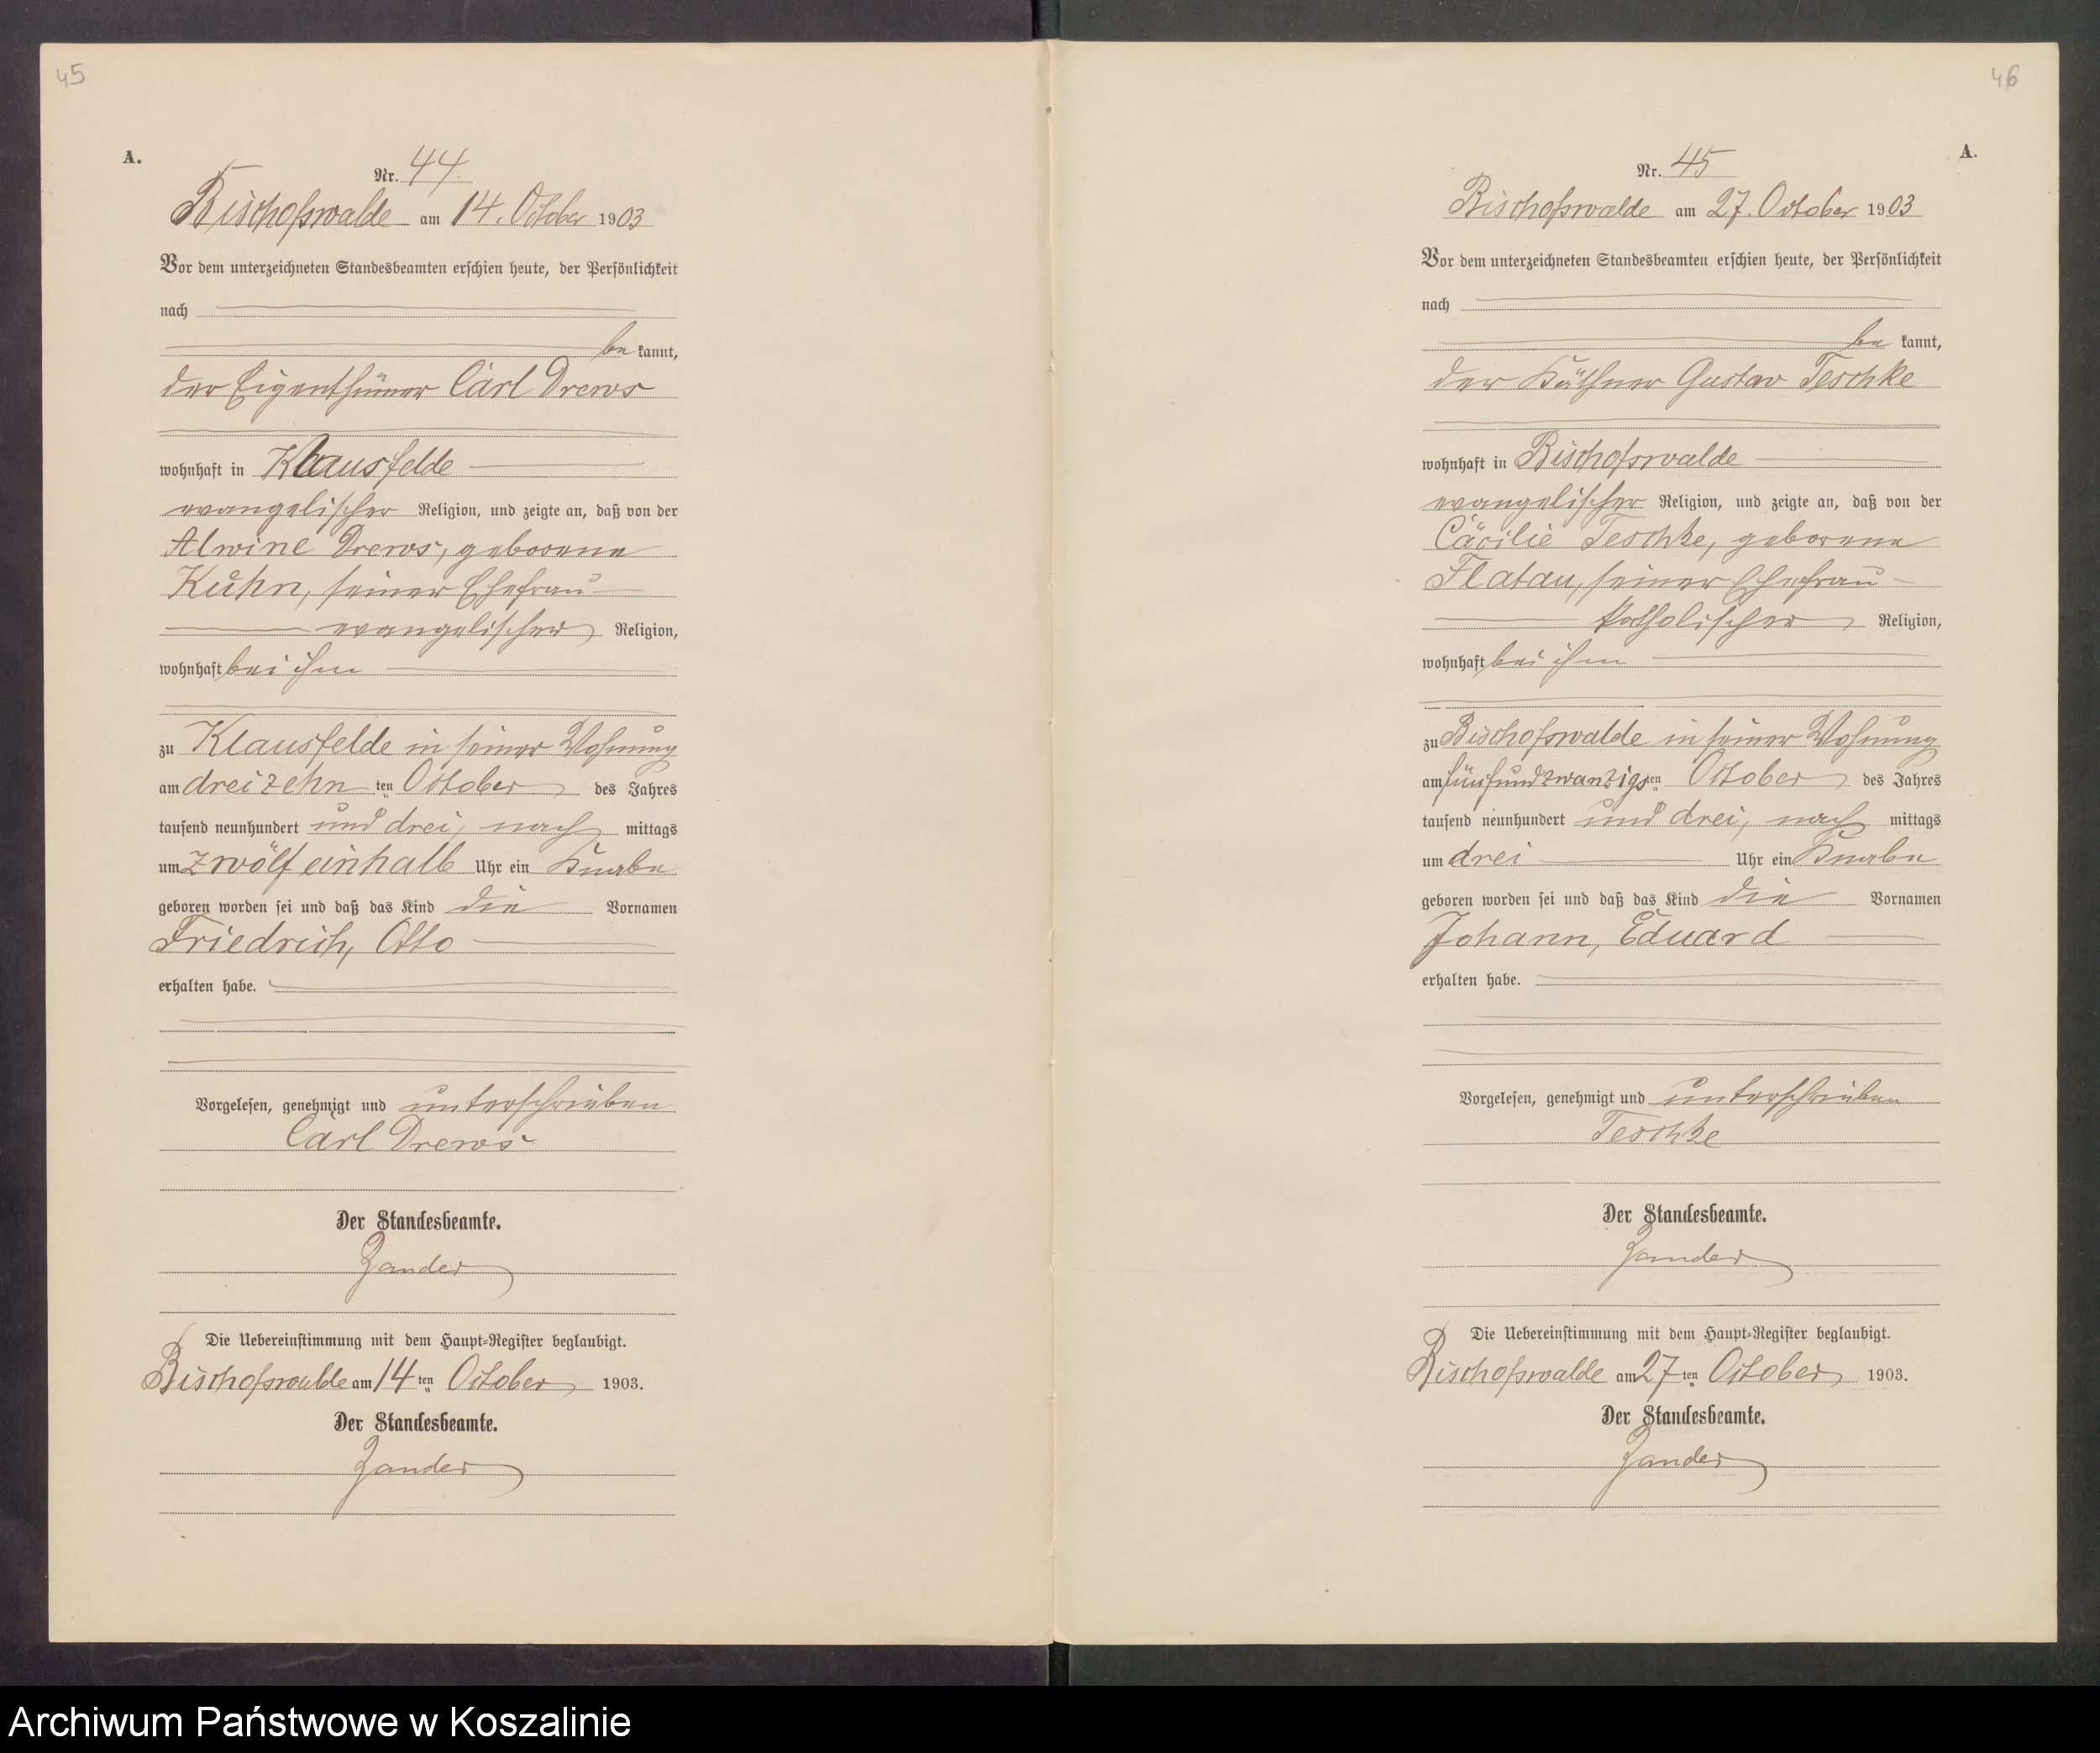 45
A.
Nr. 44.
Bischofswalde am 14. October 1903
Vor dem unterzeichneten Standesbeamten erschien heute, der Persönlichkeit
nach
be kannt,
der Eigenthümer Carl Drews
wohnhaft in Klausfelde
evangelischer Religion, und zeigte an, daß von der
Alwine Drews, geborene
Kuhn, seiner Ehefrau
evangelischer Religion,
wohnhaft bei ihm
zu Klausfelde in seiner Wohnung
am dreizehn ten October des Jahres
tausend neunhundert und drei, nach mittags
um zwölf einhalb Uhr ein Knabe
geboren worden sei und daß das Kind die Vornamen
Friedrich, Otto
erhalten habe.
Vorgelesen, genehmigt und unterschrieben
Carl Drews
Der Standesbeamte.
Zander
Die Uebereinstimmung mit dem Haupt-Register beglaubigt.
Bischofswalde am 14 ten October 1903.
Der Standesbeamte.
Zander
46
A.
Nr. 45
Bischofswalde am 27. October 1903
Vor dem unterzeichneten Standesbeamten erschien heute, der Persönlichkeit
nach
be kannt,
der Käthner Gustav Teschke
wohnhaft in Bischofswalde
evangelischer Religion, und zeigte an, daß von der
Cäcilie Teschke, geborene
Flatau, seiner Ehefrau
katholischer Religion,
wohnhaft bei ihm
zu Bischofswalde in seiner Wohnung
am fünfundzwanzigs ten October des Jahres
tausend neunhundert und drei, nach mittags
um drei Uhr ein Knabe
geboren worden sei und daß das Kind die Vornamen
Johann, Eduard
erhalten habe.
Vorgelesen, genehmigt und unterschrieben
Teschke
Der Standesbeamte.
Zander
Die Uebereinstimmung mit dem Haupt-Register beglaubigt.
Bischofswalde am 27 ten October 1903.
Der Standesbeamte.
Zander
Archiwum Państwowe w Koszalinie